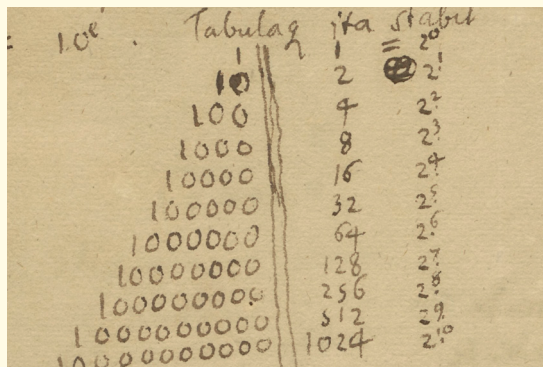 = 10^e . Tabulaq jta stabit
1 1 = 2^0
10 2 2^1
100 4 2^2
1000 8 2^3
10000 16 2^4
100000 32 2^5
1000000 64 2^6
10000000 128 2^7
100000000 256 2^8
1000000000 512 2^9
10000000000 1024 2^10